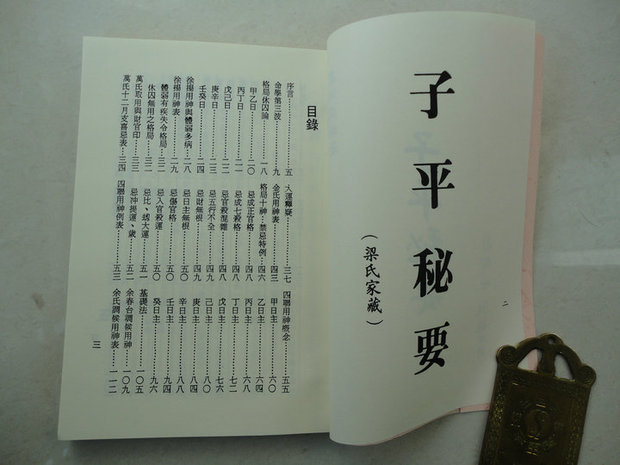 子平秘要
(梁氏家藏)
二
目錄
序言……五
命學第三波……九
格局休囚論……一八
甲乙日……二〇
丙丁日……二一
戊己日……二二
庚辛日……二三
壬癸日……二四
徐揚用神與體弱多病……
徐揚用神表……二九
體弱有疾失令格局……三二
休囚無用之格局……三二
萬氏取用與財官印……三三
萬氏十二月支喜忌表……三四
大運釋疑……三七
余氏用神表……四三
格局十神…禁忌特例……四六
忌成正官格……四八
忌成七殺格……四八
忌官殺混雜……四九
忌五行不全……四九
忌財無根……四九
忌日主無根……五〇
忌傷官格……五〇
忌入官殺運……五〇
忌比、劫大運……五一
忌冲提運、歲……五二
四聯用神例表……五三
四聯用神概念……五五
甲日主……六〇
乙日主……六四
丙日主……六八
丁日主……七二
戊日主……七六
己日主……八〇
庚日主……八四
辛日主……八八
壬日主……九四
癸日主……九六
基礎法……一〇五
余春台調候用神……一〇九
余氏調候用神表……一一二
三